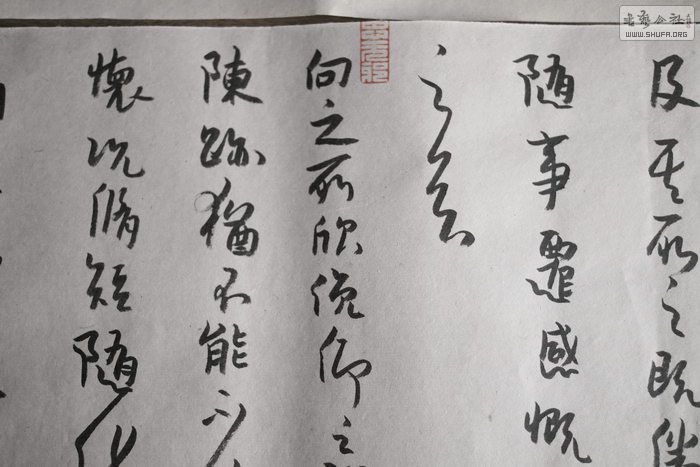 及其所之既倦
随事遷感慨
之矣
向之所欣俛仰之
陳跡猶不能不
懷況脩短随化
WWW.SHUFA.ORG